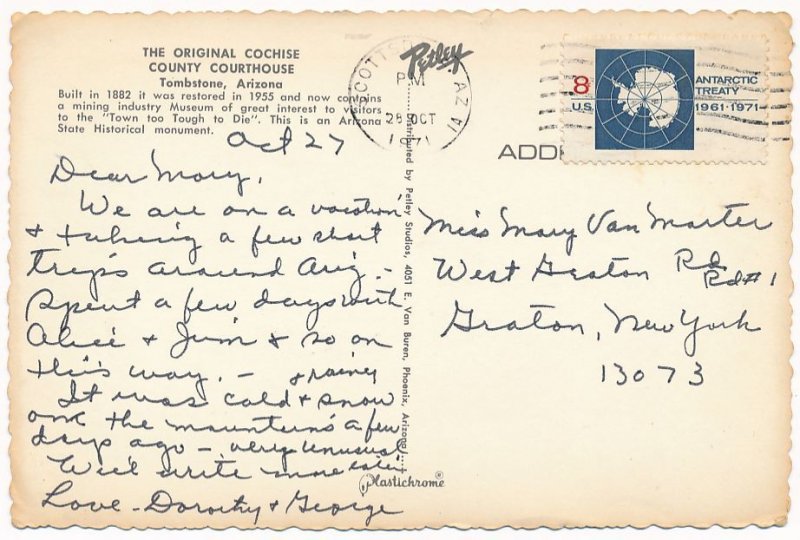 THE ORIGINAL COCHISE
COUNTY COURTHOUSE
Tombstone, Arizona
Built in 1882 it was restored in 1955 and now contains
a mining industry Museum of great interest to visitors
to the "Town too Tough to Die". This is an Arizona
State Historical monument.
Oct 27
Dear Mary,
We are on a vacation
+ taking a few short
trips around Ariz. -
spent a few days with
Alice + Jim + so on
this way. -
+ rainey
It was cold + snow
on the mountains a few
days ago - very unusual
We'll write more later
Love - Dorothy + George
Distributed by Petley Studios, 4051 E. Van Buren, Phoenix, Arizona
Plastichrome®
Petley
SCOTTS
AZ
P.M.
26 OCT
1971
ADD
8c
U.S.
ANTARCTIC
TREATY
1961-1971
Miss Mary Van Marter
West Groton Rd
Rd #1
Groton, New York
13073